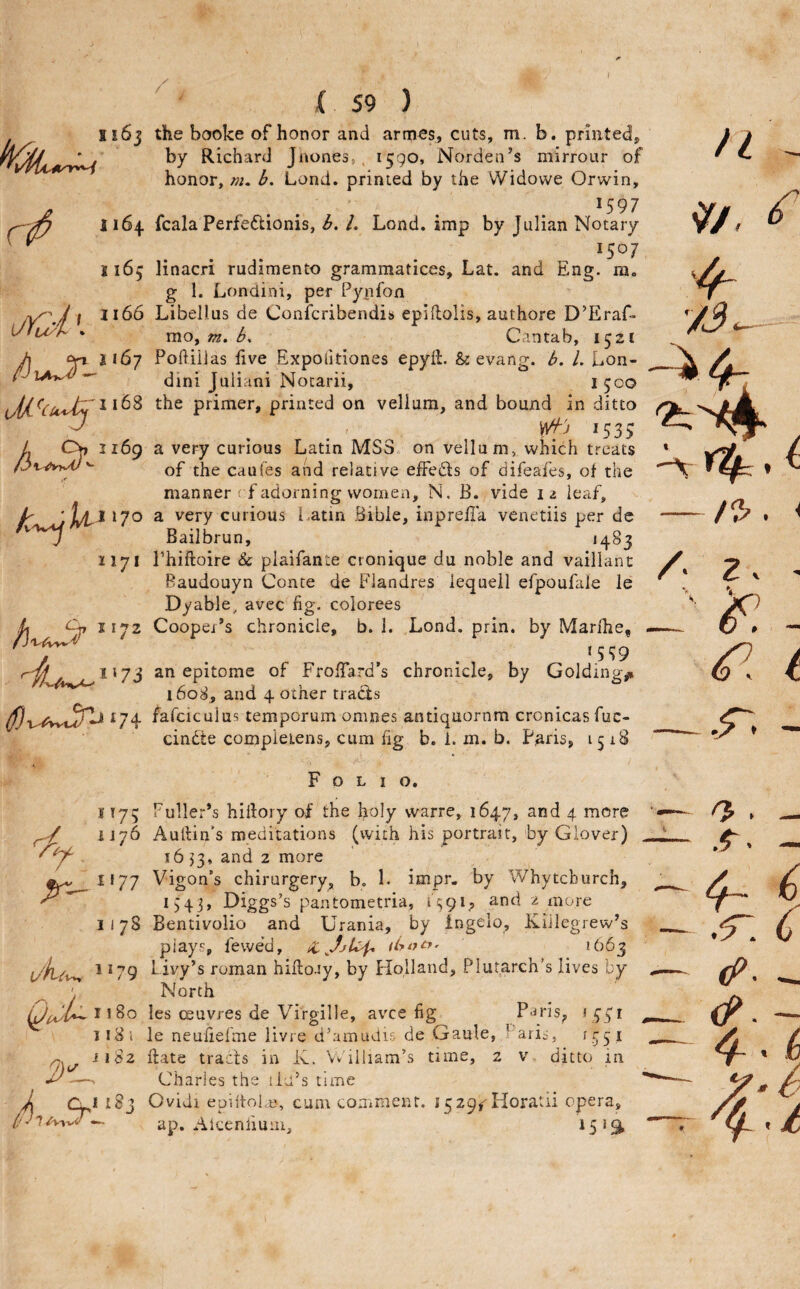 ( 59 )
1163 the booke of honor and armes, cuts, m. b. printed,
by Richard Jhones, 1590, Norden's mirrour of
honor, m. b. Lond. printed by the Widowe Orwin,
1597
1164 ſcala Perfectionis, b. l. Lond. imp by Julian Notary
1507
1165 linacri rudimento grammatices, Lat. and Eng. m.
g l. Londini, per Pynſon
1166 Libellus de Conſcribendis epiſtolis, authore D'Eraſ-
mo, m. b. Cantab, 1521
1167 Poſtillas ſive Expoſitiones epyſt. & evang. b. l. Lon-
dini Juliani Notarii, 1500
1168 the primer, printed on vellum, and bound in ditto
1535
1169 a very curious Latin MSS on vellum, which treats
of the cauſes and relative effects of diſeaſes, of the
manner of adorning women, N. B. vide 12 leaf,
1170 a very curious Latin Bible, inpreſſa venetiis per de
Bailbrun, 1483
1171 l'hiſtoire & plaiſante cronique du noble and vaillant
Baudouyn Conte de Flandres lequell eſpouſale le
Dyable, avec fig. colorees
1172 Cooper's chronicle, b. l. Lond. prin. by Marſhe,
1559
1173 an epitome of Froſſard's chronicle, by Golding,
1608, and 4 other tracts
1174 faſciculus temporum omnes antiquornm cronicas ſuc-
cincte complet­ens, cum fig b. l. m. b. Paris, 1518
FOLIO.
1175 Fuller's hiſtory of the holy warre, 1647, and 4 more
1176 Auſtin's meditations (with his portrait, by Glover)
1633, and 2 more
1177 Vigon's chirurgery, b. l. impr. by Whytchurch,
1543, Diggs's pantometria, 1591, and 2 more
1178 Bentivolio and Urania, by Ingelo, Killegrew's
plays, ſewed, 1663
1179 Livy's roman hiſtory, by Holland, Plutarch's lives by
North
1180 les œuvres de Virgille, avce fig Paris, 1551
1181 le neufieſme livre d'amudis de Gaule, Paris, 1551
1182 ſtate tracts in K. William's time, 2 v. ditto in
Charles the iid's time
1183 Ovidi epiſtolæ, cum comment. 1529, Horatii opera,
ap. Alcenſium, 1519